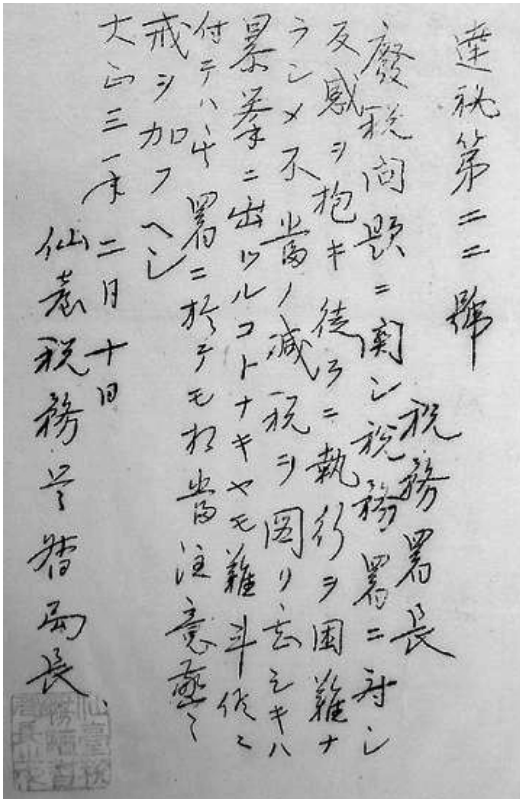 達秘第二二號
税務署長
廢税問題ニ関シ税務署ニ対シ
反感ヲ抱キ徒ラニ執行ヲ困難ナ
ラシメ不当ノ減税ヲ図リ甚シキハ
暴挙ニ出ツルコトナキヤモ難斗候ニ
付テハ此署ニ於テモ相当注意警
戒ヲ加フヘシ
大正三年二月十日
仙臺税務監督局長